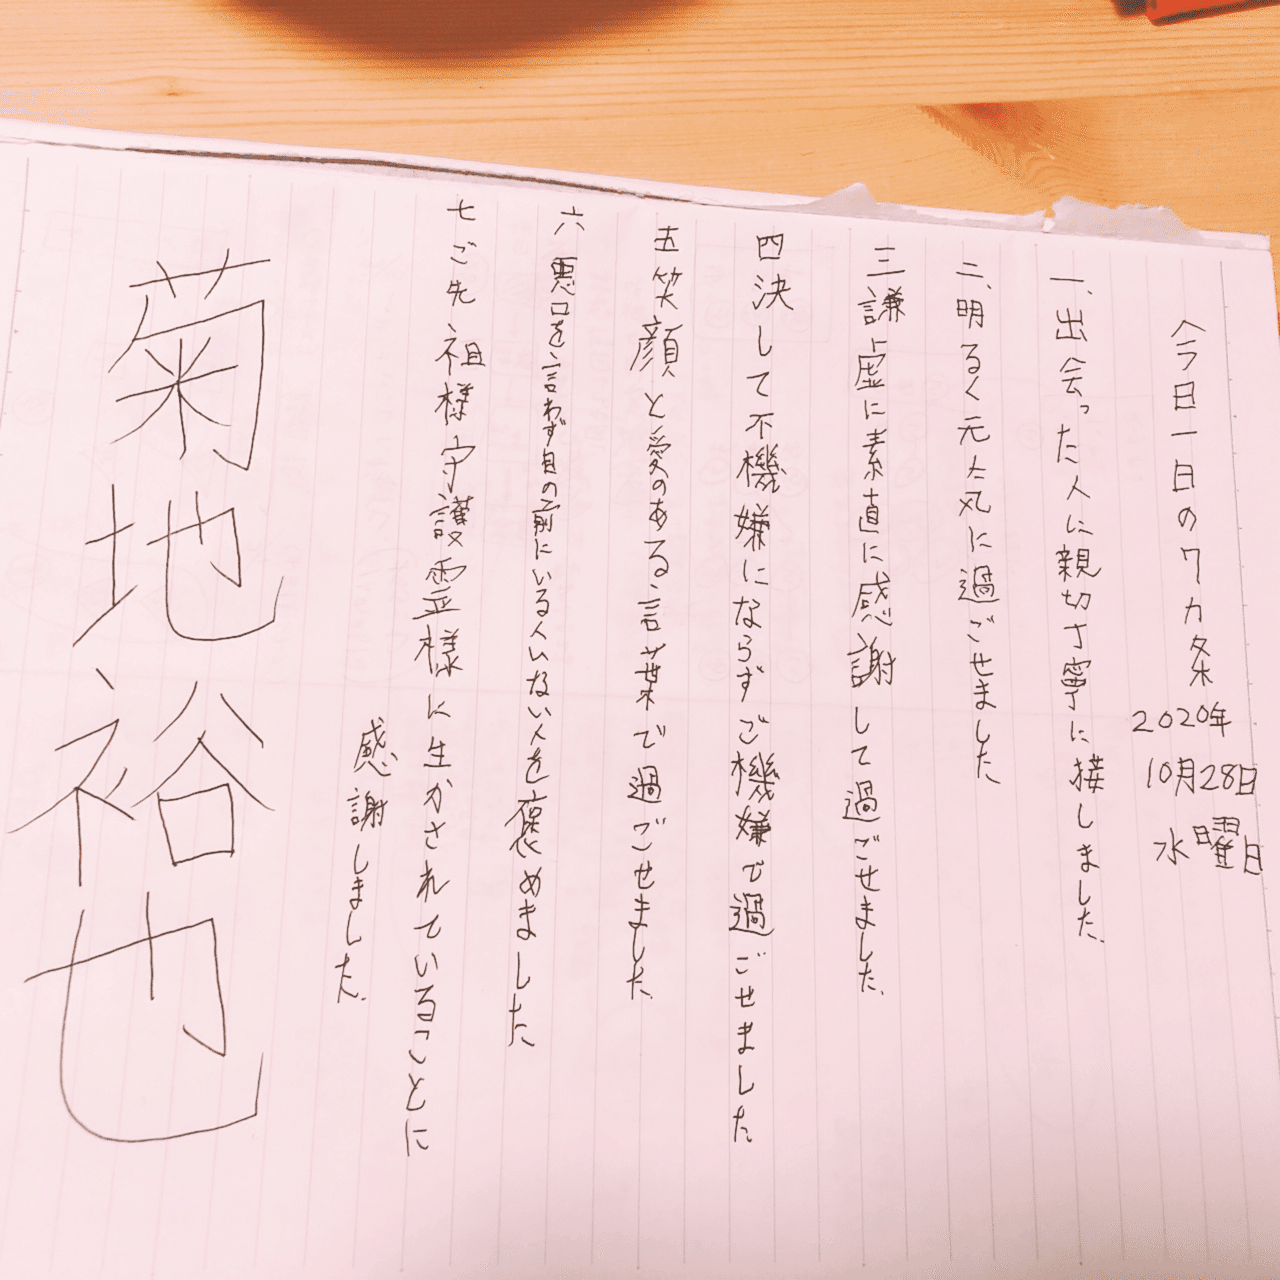 今日一日の7カ条
2020年
10月28日
水曜日
一、出会った人に親切丁寧に接しました、
二、明るく元気に過ごせました
三謙虚に素直に感謝して過ごせました、
四決して不機嫌にならずご機嫌で過ごせました
五笑顔と愛のある言葉で過ごせました
六悪口を言わず目の前にいる人いない人を褒めました
七ご先祖様守護霊様に生かされていることに
感謝しました、
菊地裕也